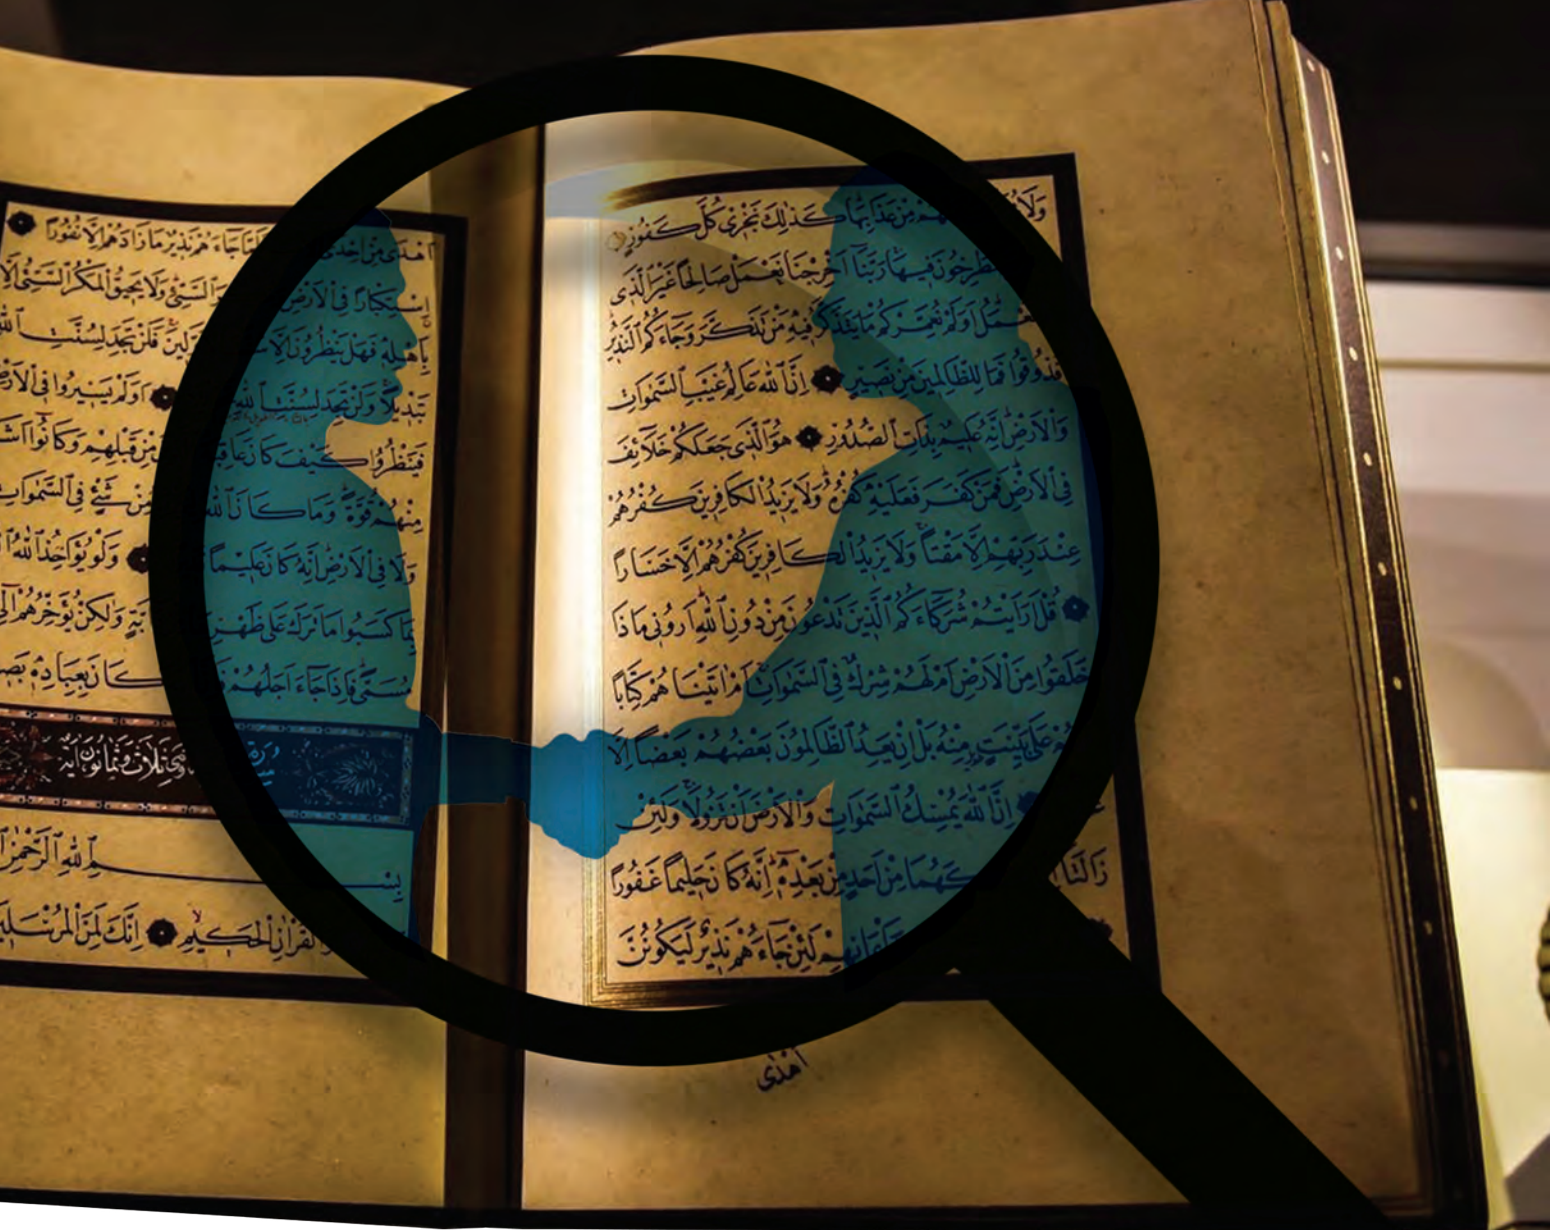 وَلَا مِنْ عَذَابِهَا كَذٰلِكَ نَجْزِى كُلَّ كَفُورٍ
فِيهَا رَبَّنَا اَخْرِجْنَا نَعْمَلْ صَالِحًا غَيْرَ الَّذِى
اَوَلَمْ نُعَمِّرْكُمْ مَا يَتَذَكَّرُ فِيهِ مَنْ تَذَكَّرَ وَجَاءَكُمُ النَّذِيرُ
فَذُوقُوا فَمَا لِلظَّالِمِينَ مِنْ نَصِيرٍ اِنَّ اللهَ عَالِمُ غَيْبِ السَّمٰوَاتِ
وَالْاَرْضِ اِنَّهُ عَلِيمٌ بِذَاتِ الصُّدُورِ هُوَ الَّذِى جَعَلَكُمْ خَلَائِفَ
فِى الْاَرْضِ فَمَنْ كَفَرَ فَعَلَيْهِ كُفْرُهُ وَلَا يَزِيدُ الْكَافِرِينَ كُفْرُهُمْ
عِنْدَ رَبِّهِمْ اِلَّا مَقْتًا وَلَا يَزِيدُ الْكَافِرِينَ كُفْرُهُمْ اِلَّا خَسَارًا
قُلْ اَرَاَيْتُمْ شُرَكَاءَكُمُ الَّذِينَ تَدْعُونَ مِنْ دُونِ اللهِ اَرُونِى مَاذَا
خَلَقُوا مِنَ الْاَرْضِ اَمْ لَهُمْ شِرْكٌ فِى السَّمٰوَاتِ اَمْ اٰتَيْنَاهُمْ كِتَابًا
عَلٰى بَيِّنَتٍ مِنْهُ بَلْ اِنْ يَعِدُ الظَّالِمُونَ بَعْضُهُمْ بَعْضًا اِلَّا
اِنَّ اللهَ يُمْسِكُ السَّمٰوَاتِ وَالْاَرْضَ اَنْ تَزُولَا وَلَئِنْ
زَالَتَا مِنْ اَحَدٍ مِنْ بَعْدِهِ اِنَّهُ كَانَ حَلِيمًا غَفُورًا
لَئِنْ جَاءَهُمْ نَذِيرٌ لَيَكُونُنَّ
اَهْدٰى
اَهْدٰى مِنْ اِحْدَى جَاءَهُمْ نَذِيرٌ مَا زَادَهُمْ اِلَّا نُفُورًا
اِسْتِكْبَارًا فِى الْاَرْضِ السَّيِّئِ وَلَا يَحِيقُ الْمَكْرُ السَّيِّئُ اِلَّا
بِاَهْلِهِ فَهَلْ يَنْظُرُونَ فَلَنْ تَجِدَ لِسُنَّتِ اللهِ
تَبْدِيلًا وَلَنْ تَجِدَ لِسُنَّتِ اللهِ اَوَلَمْ يَسِيرُوا فِى الْاَرْضِ
فَيَنْظُرُوا كَيْفَ كَانَ مِنْ قَبْلِهِمْ وَكَانُوا
مِنْهُمْ قُوَّةً وَمَا كَانَ اللهُ مِنْ شَيْءٍ فِى السَّمٰوَاتِ
وَلَا فِى الْاَرْضِ اِنَّهُ كَانَ عَلِيمًا وَلَوْ يُؤَاخِذُ اللهُ
بِمَا كَسَبُوا مَا تَرَكَ عَلٰى وَلٰكِنْ يُؤَخِّرُهُمْ
مُسَمًّى فَاِذَا جَاءَ اَجَلُهُمْ كَانَ بِعِبَادِهِ
بِسْمِ اللهِ الرَّحْمٰنِ
الْحَكِيمِ اِنَّكَ لَمِنَ